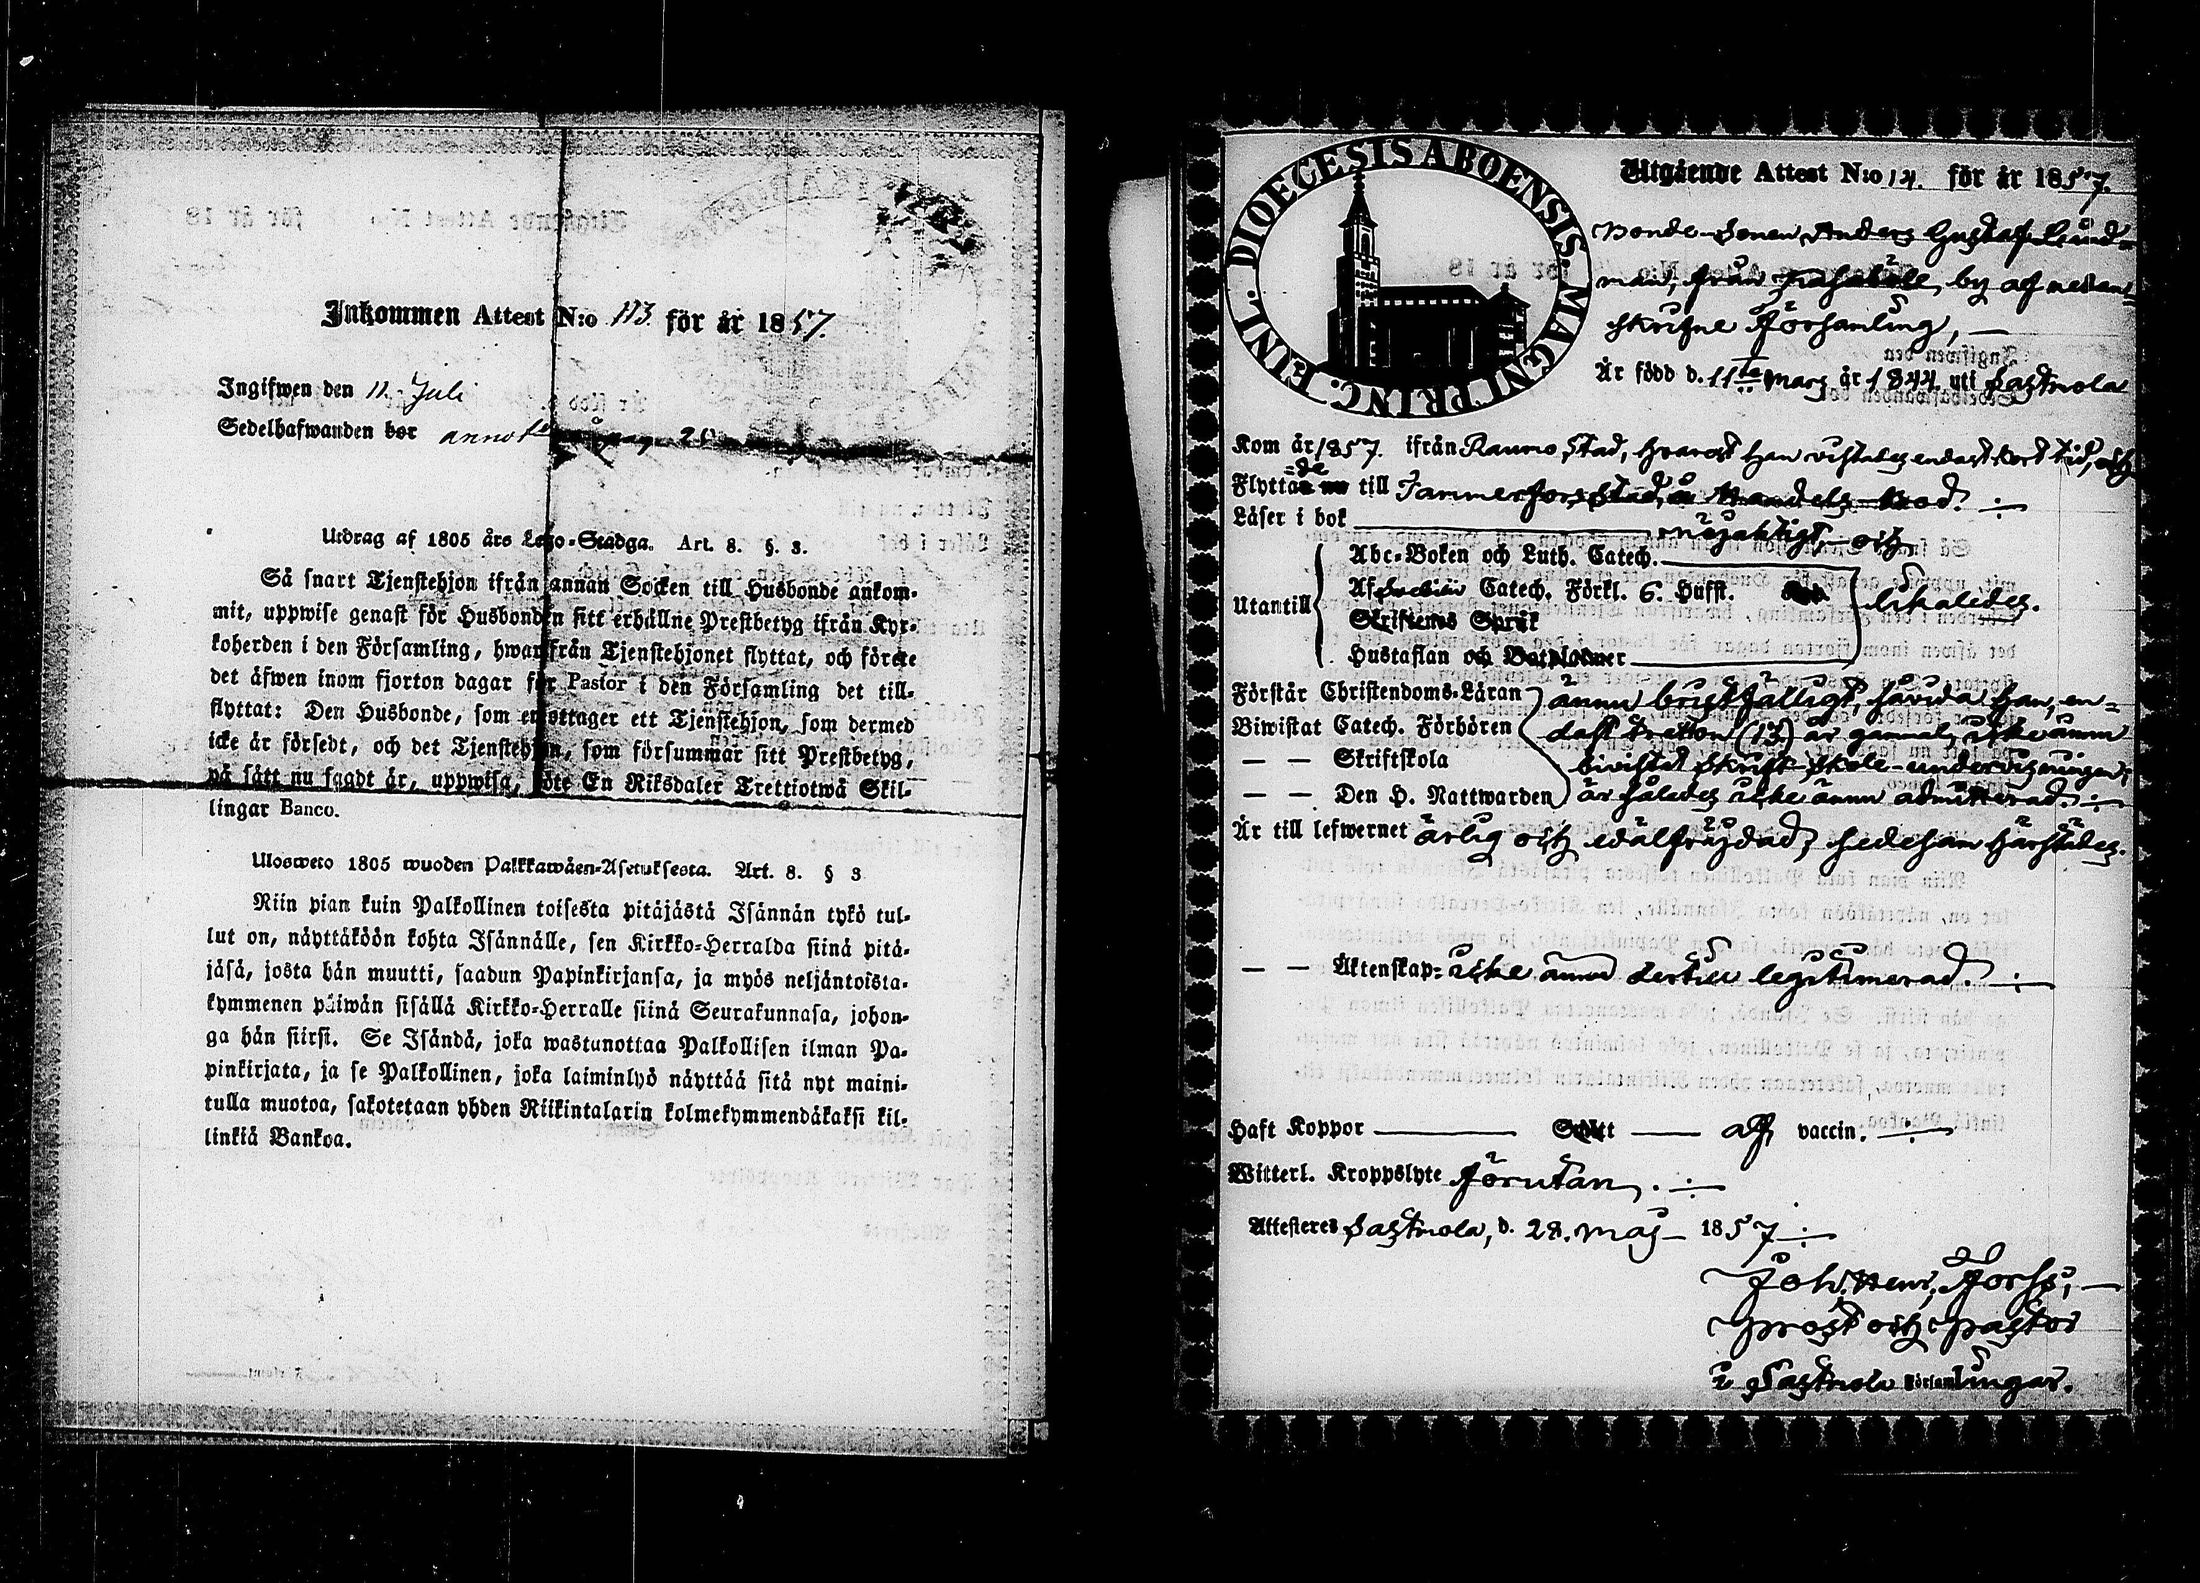 Inkommen Attest N:o 113. för år 1857.
Ingifwen den 11. Juli
Sedelhafwanden bor
Utdrag af 1805 års Lego-Stadga. Art. 8. §. 3.
Så snart Tjenstehjon ifrån annan Socken till Husbonde ankom-
mit, uppwise genast för Husbonden sitt erhållne Prestbetyg ifrån Kyr-
koherden i den Församling, hwarifrån Tjenstehjonet flyttat, och förete
det äfwen inom fjorton dagar för Pastor i den Församling det till-
flyttat: Den Husbonde, som emottager ett Tjenstehjon, som dermed
icke är försedt, och det Tjenstehjon, som försummar sitt Prestbetyg,
på sätt nu sagdt är, uppwisa, böte En Riksdaler Trettiotwå Skil-
lingar Banco.
Ulosweto 1805 wuoden Palkkawäen-Asetuksesta. Art. 8. § 3
Niin pian kuin Palkollinen toisesta pitäjästä Isännän tykö tul-
lut on, näyttäköön kohta Isännälle, sen Kirkko-Herralda siinä pitä-
jäsä, josta hän muutti, saadun Papinkirjansa, ja myös neljäntoista-
kymmenen päiwän sisällä Kirkko-Herralle siinä Seurakunnasa, johon-
ga hän siirsi. Se Isändä, joka wastunottaa Palkollisen ilman Pa-
pinkirjata, ja se Palkollinen, joka laiminlyö näyttää sitä nyt maini-
tulla muotoa, sakotetaan yhden Riikintalarin kolmekymmendäkaksi kil-
linkiä Bankoa.
DIOECESIS ABOENSIS. MAGNI PRINC. FINL.
Utgående Attest N:o 14. för år 1857.
Bonde-Sonen Anders Gustaf Lind-
man, från by af nedan-
skrifne Församling, —
Är född d. 11te Mars år 1844. uti Sastmola
Kom år 1857. ifrån Raumo Stad, hvarest han vistades endast kort tid, och
Flyttade nu till Tammerfors Stad, Handels-bod.
Läser i bok nöjaktigt, och
Utantill
Abc-Boken och Luth. Catech.
Af Svebilii Catech. Förkl. 6. Hufst. likaledes.
Skriftenes Språk
Hustaflan och Botpsalmer
Förstår Christendoms-Läran ännu bristfälligt, såvida han, en-
Biwistat Catech. Förhören dast tretton (13) år gammal, icke ännu
— — Skriftskola bivistat Skrift-skole-undervisningen;
— — Den H. Nattwarden är således icke ännu admitterad.
Är till lefwernet ärlig och välfrejdad, sedesam härstädes.
— — Äktenskap: icke ännu dertill legitimerad.
Haft Koppor — Smitt — af vaccin.
Witterl. Kroppslyte Förutan.
Attesteres Sastmola, d. 28. Maj 1857
Joh. Henr. Forss,
Prost och Pastor
i Sastmola Församlingar.